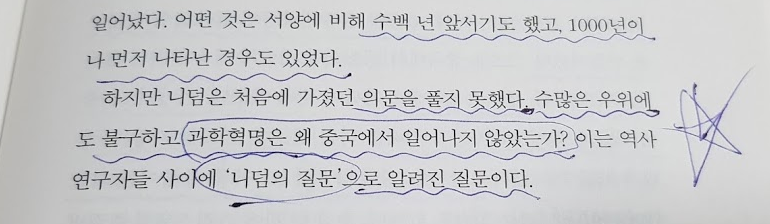 일어났다. 어떤 것은 서양에 비해 수백 년 앞서기도 했고, 1000년이
나 먼저 나타난 경우도 있었다.
하지만 니덤은 처음에 가졌던 의문을 풀지 못했다. 수많은 우위에
도 불구하고 과학혁명은 왜 중국에서 일어나지 않았는가? 이는 역사
연구자들 사이에 ‘니덤의 질문’으로 알려진 질문이다.